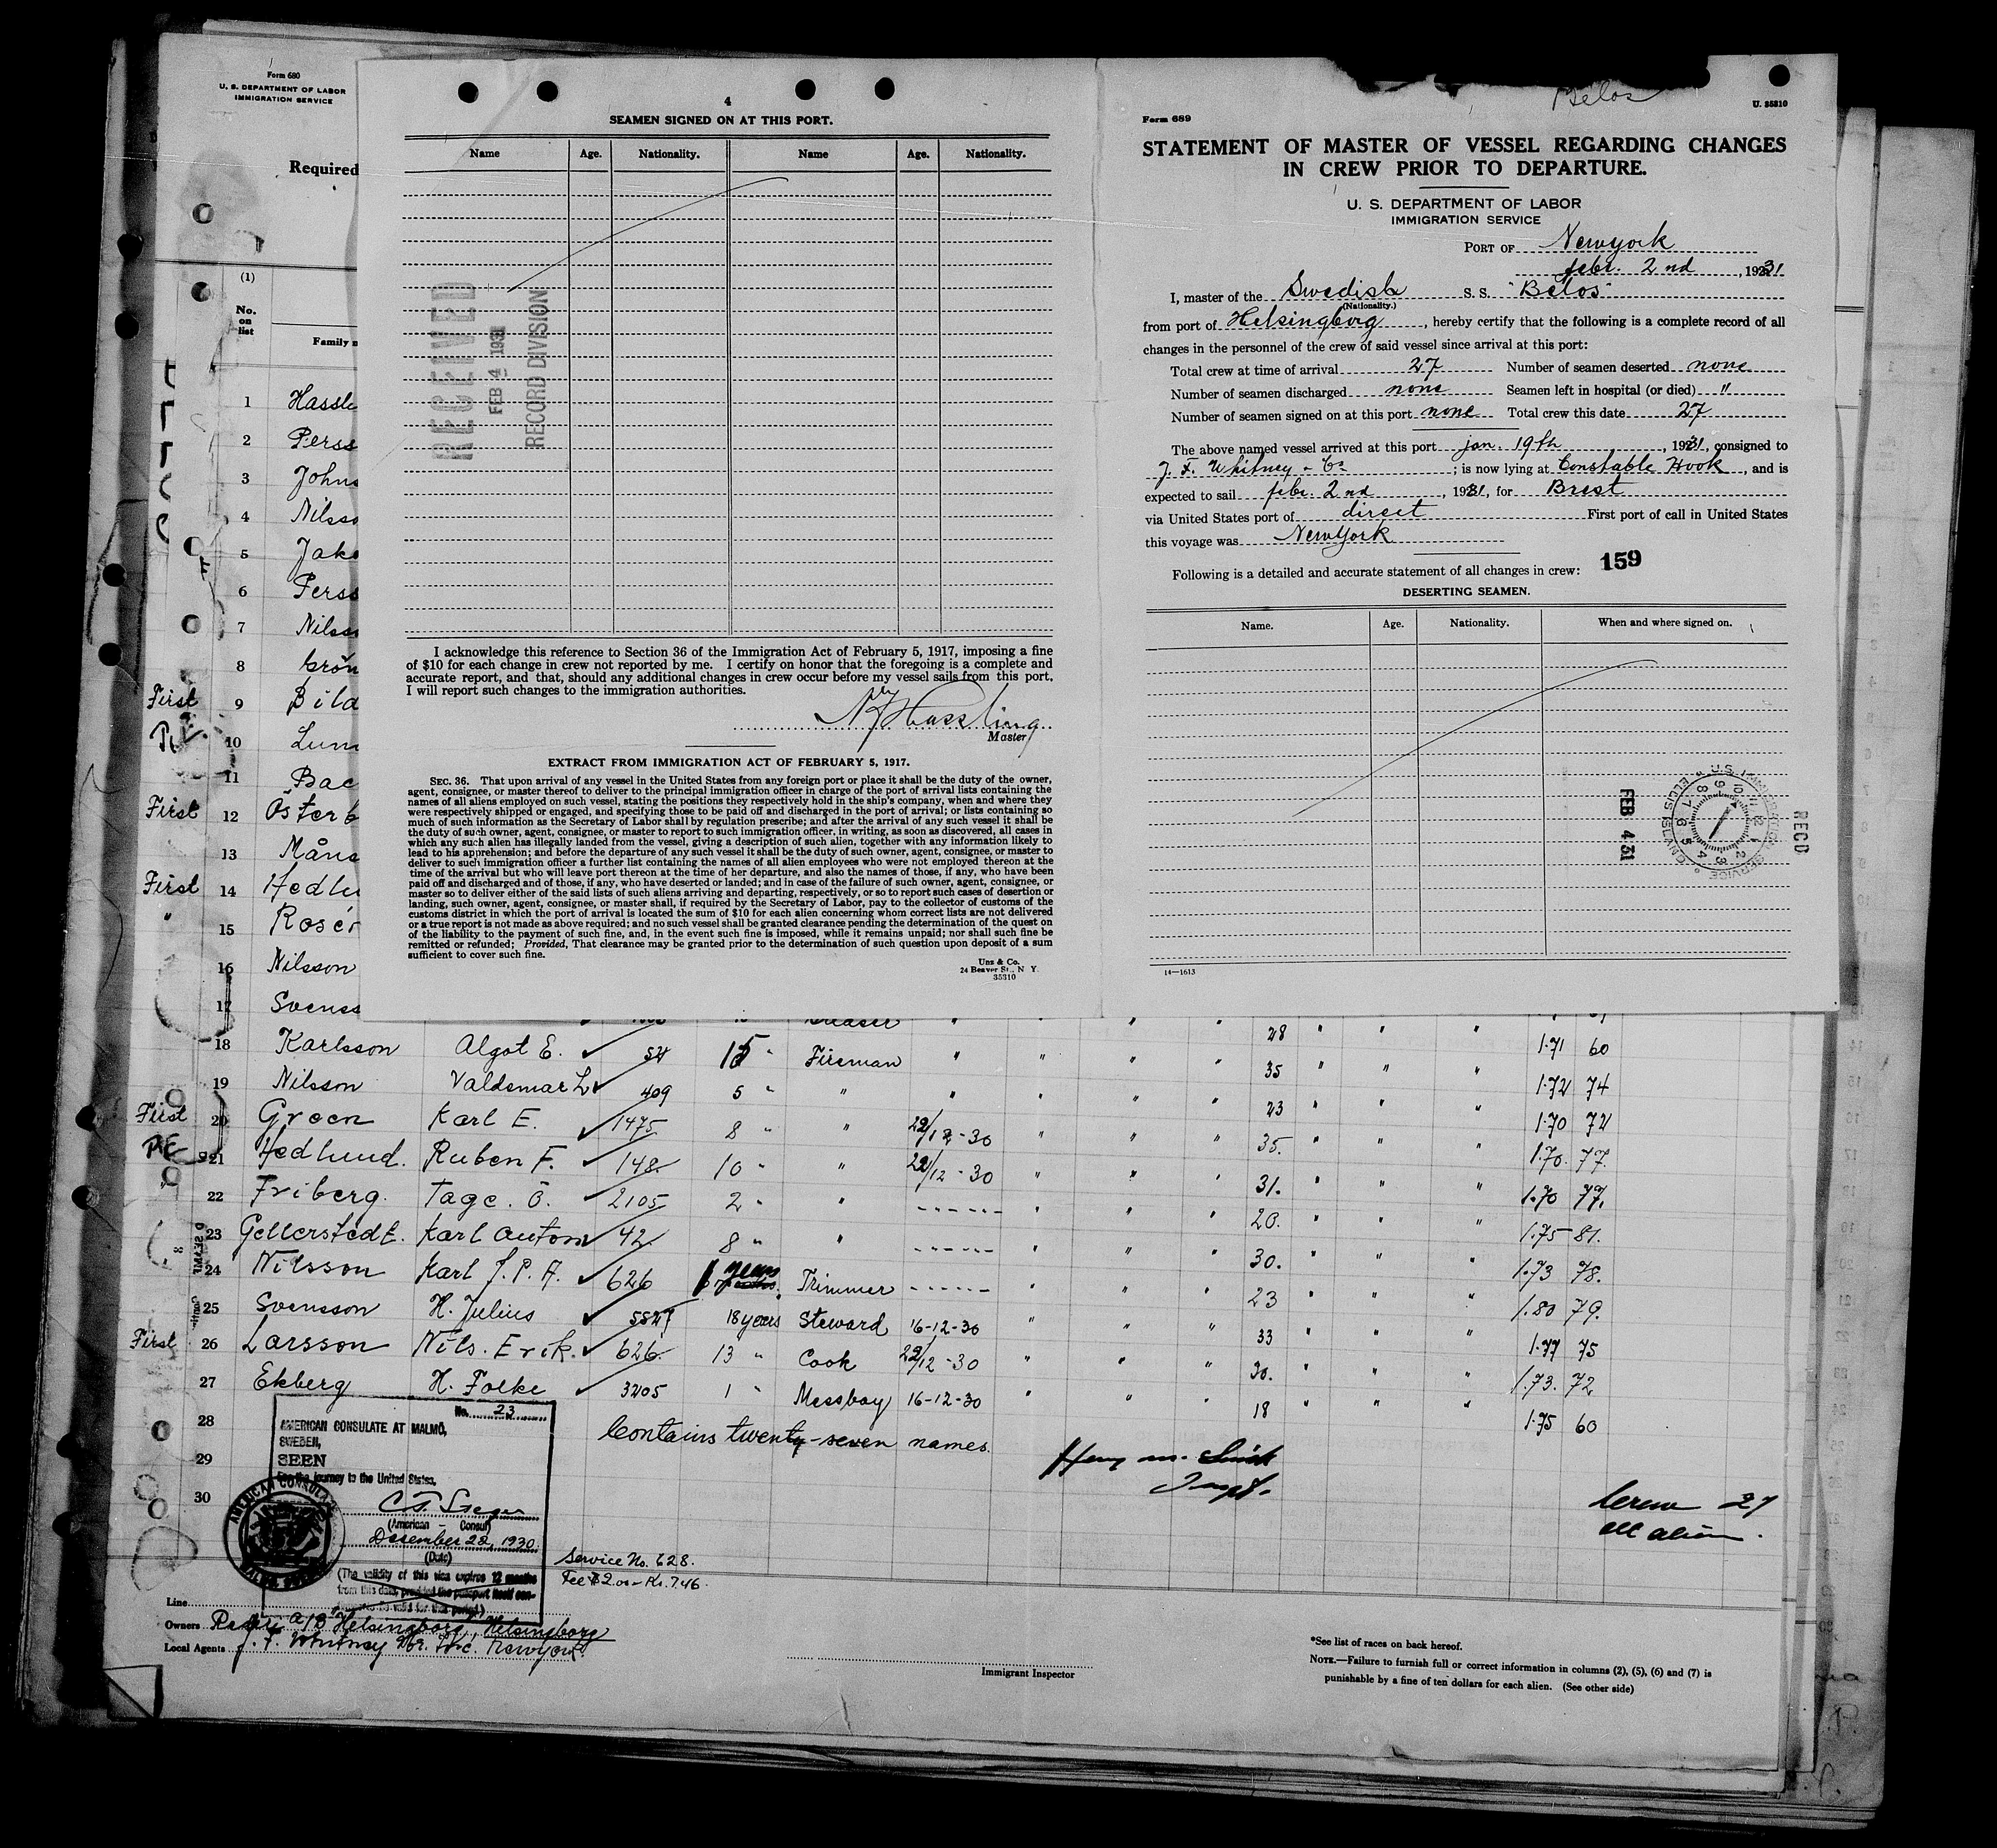 Form 680
U. S. DEPARTMENT OF LABOR
IMMIGRATION SERVICE
Required
(1)
No.
on
list
Family
1 Hassl
2 Perss
3 Johns
4 Nilss
5 Jako
6 Perss
7 Nilss
8 Grön
First 9 Bild
10 Lun
11 Bac
First 12 Österb
13 Måns
First 14 Hedlu
" 15 Rosén
16 Nilsson
17 Svenss
4
SEAMEN SIGNED ON AT THIS PORT.
Name Age. Nationality. Name Age. Nationality.
RECEIVED
FEB 4 1931
RECORD DIVISION
I acknowledge this reference to Section 36 of the Immigration Act of February 5, 1917, imposing a fine
of $10 for each change in crew not reported by me. I certify on honor that the foregoing is a complete and
accurate report, and that, should any additional changes in crew occur before my vessel sails from this port,
I will report such changes to the immigration authorities.
Hassling
Master
EXTRACT FROM IMMIGRATION ACT OF FEBRUARY 5, 1917.
SEC. 36. That upon arrival of any vessel in the United States from any foreign port or place it shall be the duty of the owner,
agent, consignee, or master thereof to deliver to the principal immigration officer in charge of the port of arrival lists containing the
names of all aliens employed on such vessel, stating the positions they respectively hold in the ship's company, when and where they
were respectively shipped or engaged, and specifying those to be paid off and discharged in the port of arrival; or lists containing so
much of such information as the Secretary of Labor shall by regulation prescribe; and after the arrival of any such vessel it shall be
the duty of such owner, agent, consignee, or master to report to such immigration officer, in writing, as soon as discovered, all cases in
which any such alien has illegally landed from the vessel, giving a description of such alien, together with any information likely to
lead to his apprehension; and before the departure of any such vessel it shall be the duty of such owner, agent, consignee, or master to
deliver to such immigration officer a further list containing the names of all alien employees who were not employed thereon at the
time of the arrival but who will leave port thereon at the time of her departure, and also the names of those, if any, who have been
paid off and discharged and of those, if any, who have deserted or landed; and in case of the failure of such owner, agent, consignee, or
master so to deliver either of the said lists of such aliens arriving and departing, respectively, or so to report such cases of desertion or
landing, such owner, agent, consignee, or master shall, if required by the Secretary of Labor, pay to the collector of customs of the
customs district in which the port of arrival is located the sum of $10 for each alien concerning whom correct lists are not delivered
or a true report is not made as above required; and no such vessel shall be granted clearance pending the determination of the quest on
of the liability to the payment of such fine, and, in the event such fine is imposed, while it remains unpaid; nor shall such fine be
remitted or refunded; Provided, That clearance may be granted prior to the determination of such question upon deposit of a sum
sufficient to cover such fine.
Unz & Co.
24 Beaver St., N. Y.
35310
Belos
U. 35310
Form 689
STATEMENT OF MASTER OF VESSEL REGARDING CHANGES
IN CREW PRIOR TO DEPARTURE.
U. S. DEPARTMENT OF LABOR
IMMIGRATION SERVICE
PORT OF Newyork
febr. 2nd, 1931
I, master of the Swedish S. S. "Belos"
(Nationality.)
from port of Helsingborg, hereby certify that the following is a complete record of all
changes in the personnel of the crew of said vessel since arrival at this port:
Total crew at time of arrival 27 Number of seamen deserted none
Number of seamen discharged none Seamen left in hospital (or died) "
Number of seamen signed on at this port none Total crew this date 27
The above named vessel arrived at this port jan. 19th, 1931, consigned to
J. F. Whitney & Co; is now lying at Constable Hook, and is
expected to sail febr. 2nd, 1931, for Brest
via United States port of direct First port of call in United States
this voyage was Newyork
Following is a detailed and accurate statement of all changes in crew: 159
DESERTING SEAMEN.
Name. Age. Nationality. When and where signed on.
FEB 4 31
U.S. IMMIGRATION SERVICE ELLIS ISLAND N.Y.
REC'D
14—1613
Greaser " " " " 28 " " "
18 Karlsson Algot E. 54 15 " Fireman " " " " 35 " " " 1.71 60
19 Nilsson Valdemar L 409 5 " " " " " " 23 " " " 1.72 74
First 20 Green Karl E. 1475 8 " " 22/12-30 " " " 35. " " " 1.70 72
21 Hedlund. Ruben F. 148 10 " " 22/12-30 " " " 31. " " " 1.70. 77.
" 22 Friberg. Tage. Ö. 2105 2 " " ------ " " " 20. " " " 1.70 77.
23 Gellerstedt. Karl Anton 42 8 " " ------ " " " 30. " " " 1.75 81.
24 Nilsson Karl J. P. A. 626 1 years Trimmer ------ " " " 23 " " " 1.73 78.
25 Svensson H. Julius 5527 18 years Steward 16-12-30 " " " 33 " " " 1.80 79.
First 26 Larsson Nils. Erik. 626. 13 " Cook 22/12-30 " " " 30. " " " 1.77 75
27 Ekberg H. Folke 3205 1 " Messboy 16-12-30 " " " 18 " " " 1.73. 72
28 1.75 60
29
30
Contains twenty-seven names.
Henry M. Smith
Inspt.
Crew 27
all alien.
No. 23
AMERICAN CONSULATE AT MALMÖ,
SWEDEN,
SEEN
For the journey to the United States.
(American - Consul)
December 22, 1930
(Date)
(The validity of this visa expires 12 months
from this date, provided the passport itself con-
tinues to be valid for this period.)
AMERICAN CONSULATE
Service No. 628.
Fee $2.00 - Kr. 7.46.
Line
Owners Rederi A/B Helsingborg, Helsingborg
Local Agents J. F. Whitney & Co. Inc. Newyork
Immigrant Inspector
*See list of races on back hereof.
NOTE.—Failure to furnish full or correct information in columns (2), (5), (6) and (7) is
punishable by a fine of ten dollars for each alien. (See other side)